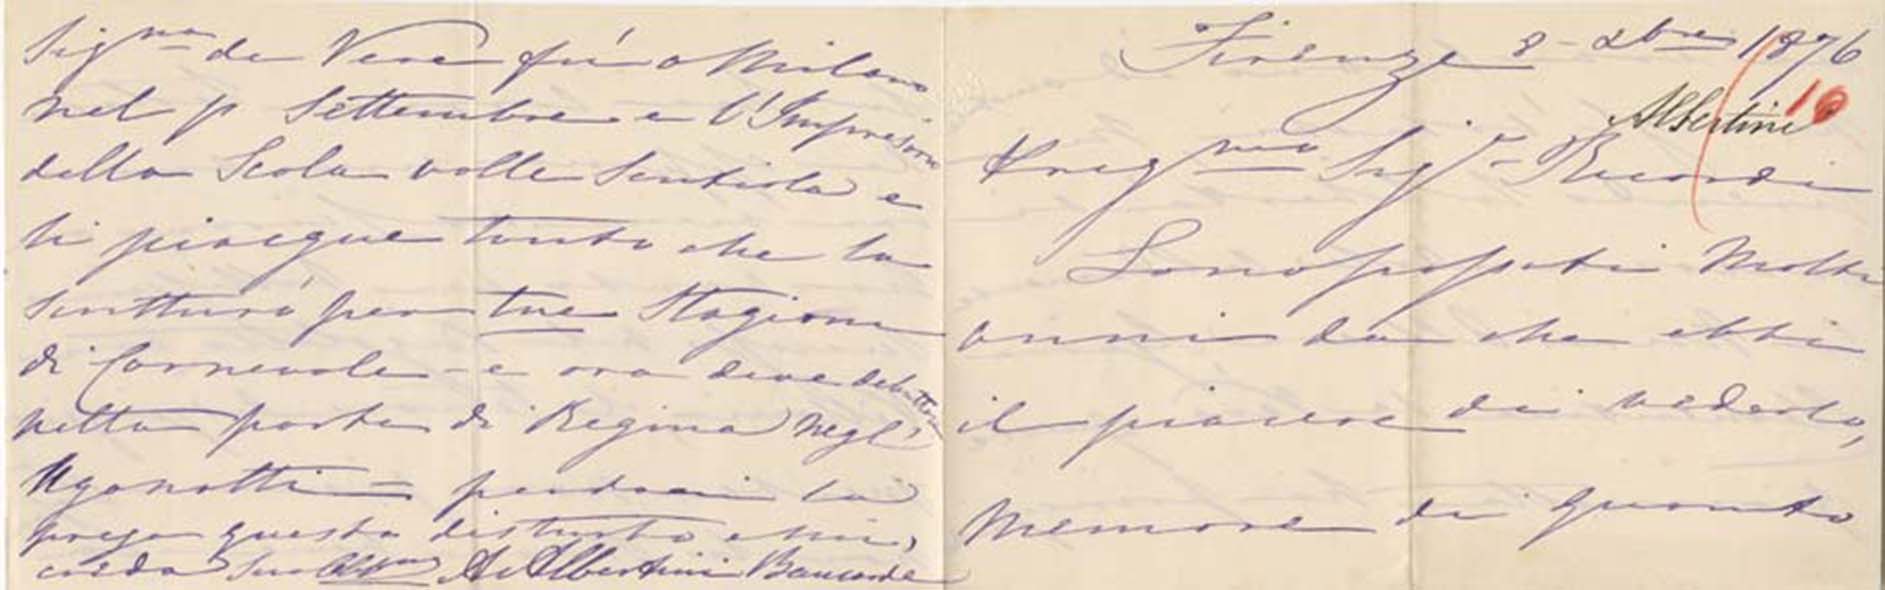 Firenze 8 - Xbre 1876
Albertini 10
Pregmo Sigr Ricordi
Sono passati molti
anni da che ebbi
il piacere di vederla,
memore di quanto
Signa de Vere fu a Milano
nel p Settembre e l'Impresa
della Scala volle sentirla e
li piacque tanto che la
scritturò per tre Stagioni
di Carnevale - e ora deve debuttare
nella parte di Regina negl'
Ugonotti = perdoni la
prego questo disturbo e mi
creda Sua A. Albertini Baucardé